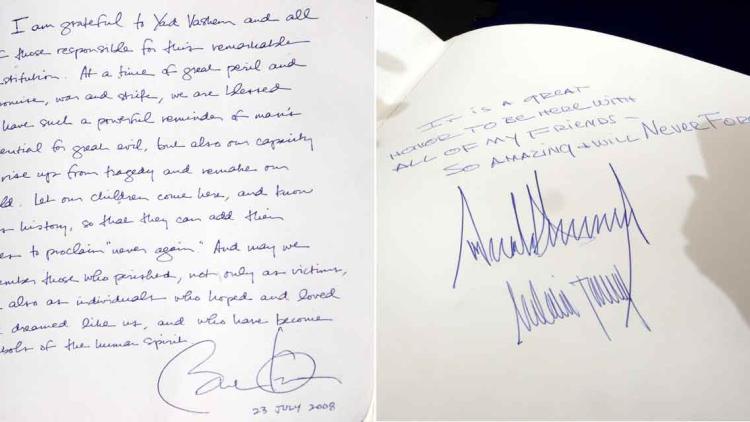 I am grateful to Yad Vashem and all
those responsible for this remarkable
stitution. At a time of great peril and
romise, war and strife, we are blessed
have such a powerful reminder of man's
ential for great evil, but also our capacity
rise up from tragedy and remake our
ld. Let our children come here, and know
history, so that they can add their
es to proclaim "never again." And may we
ember those who perished, not only as victims,
also as individuals who hoped and loved
dreamed like us, and who have become
bols of the human spirit.
23 JULY 2008
IT IS A GREAT
HONOR TO BE HERE WITH
ALL OF MY FRIENDS -
SO AMAZING + WILL NEVER FOR